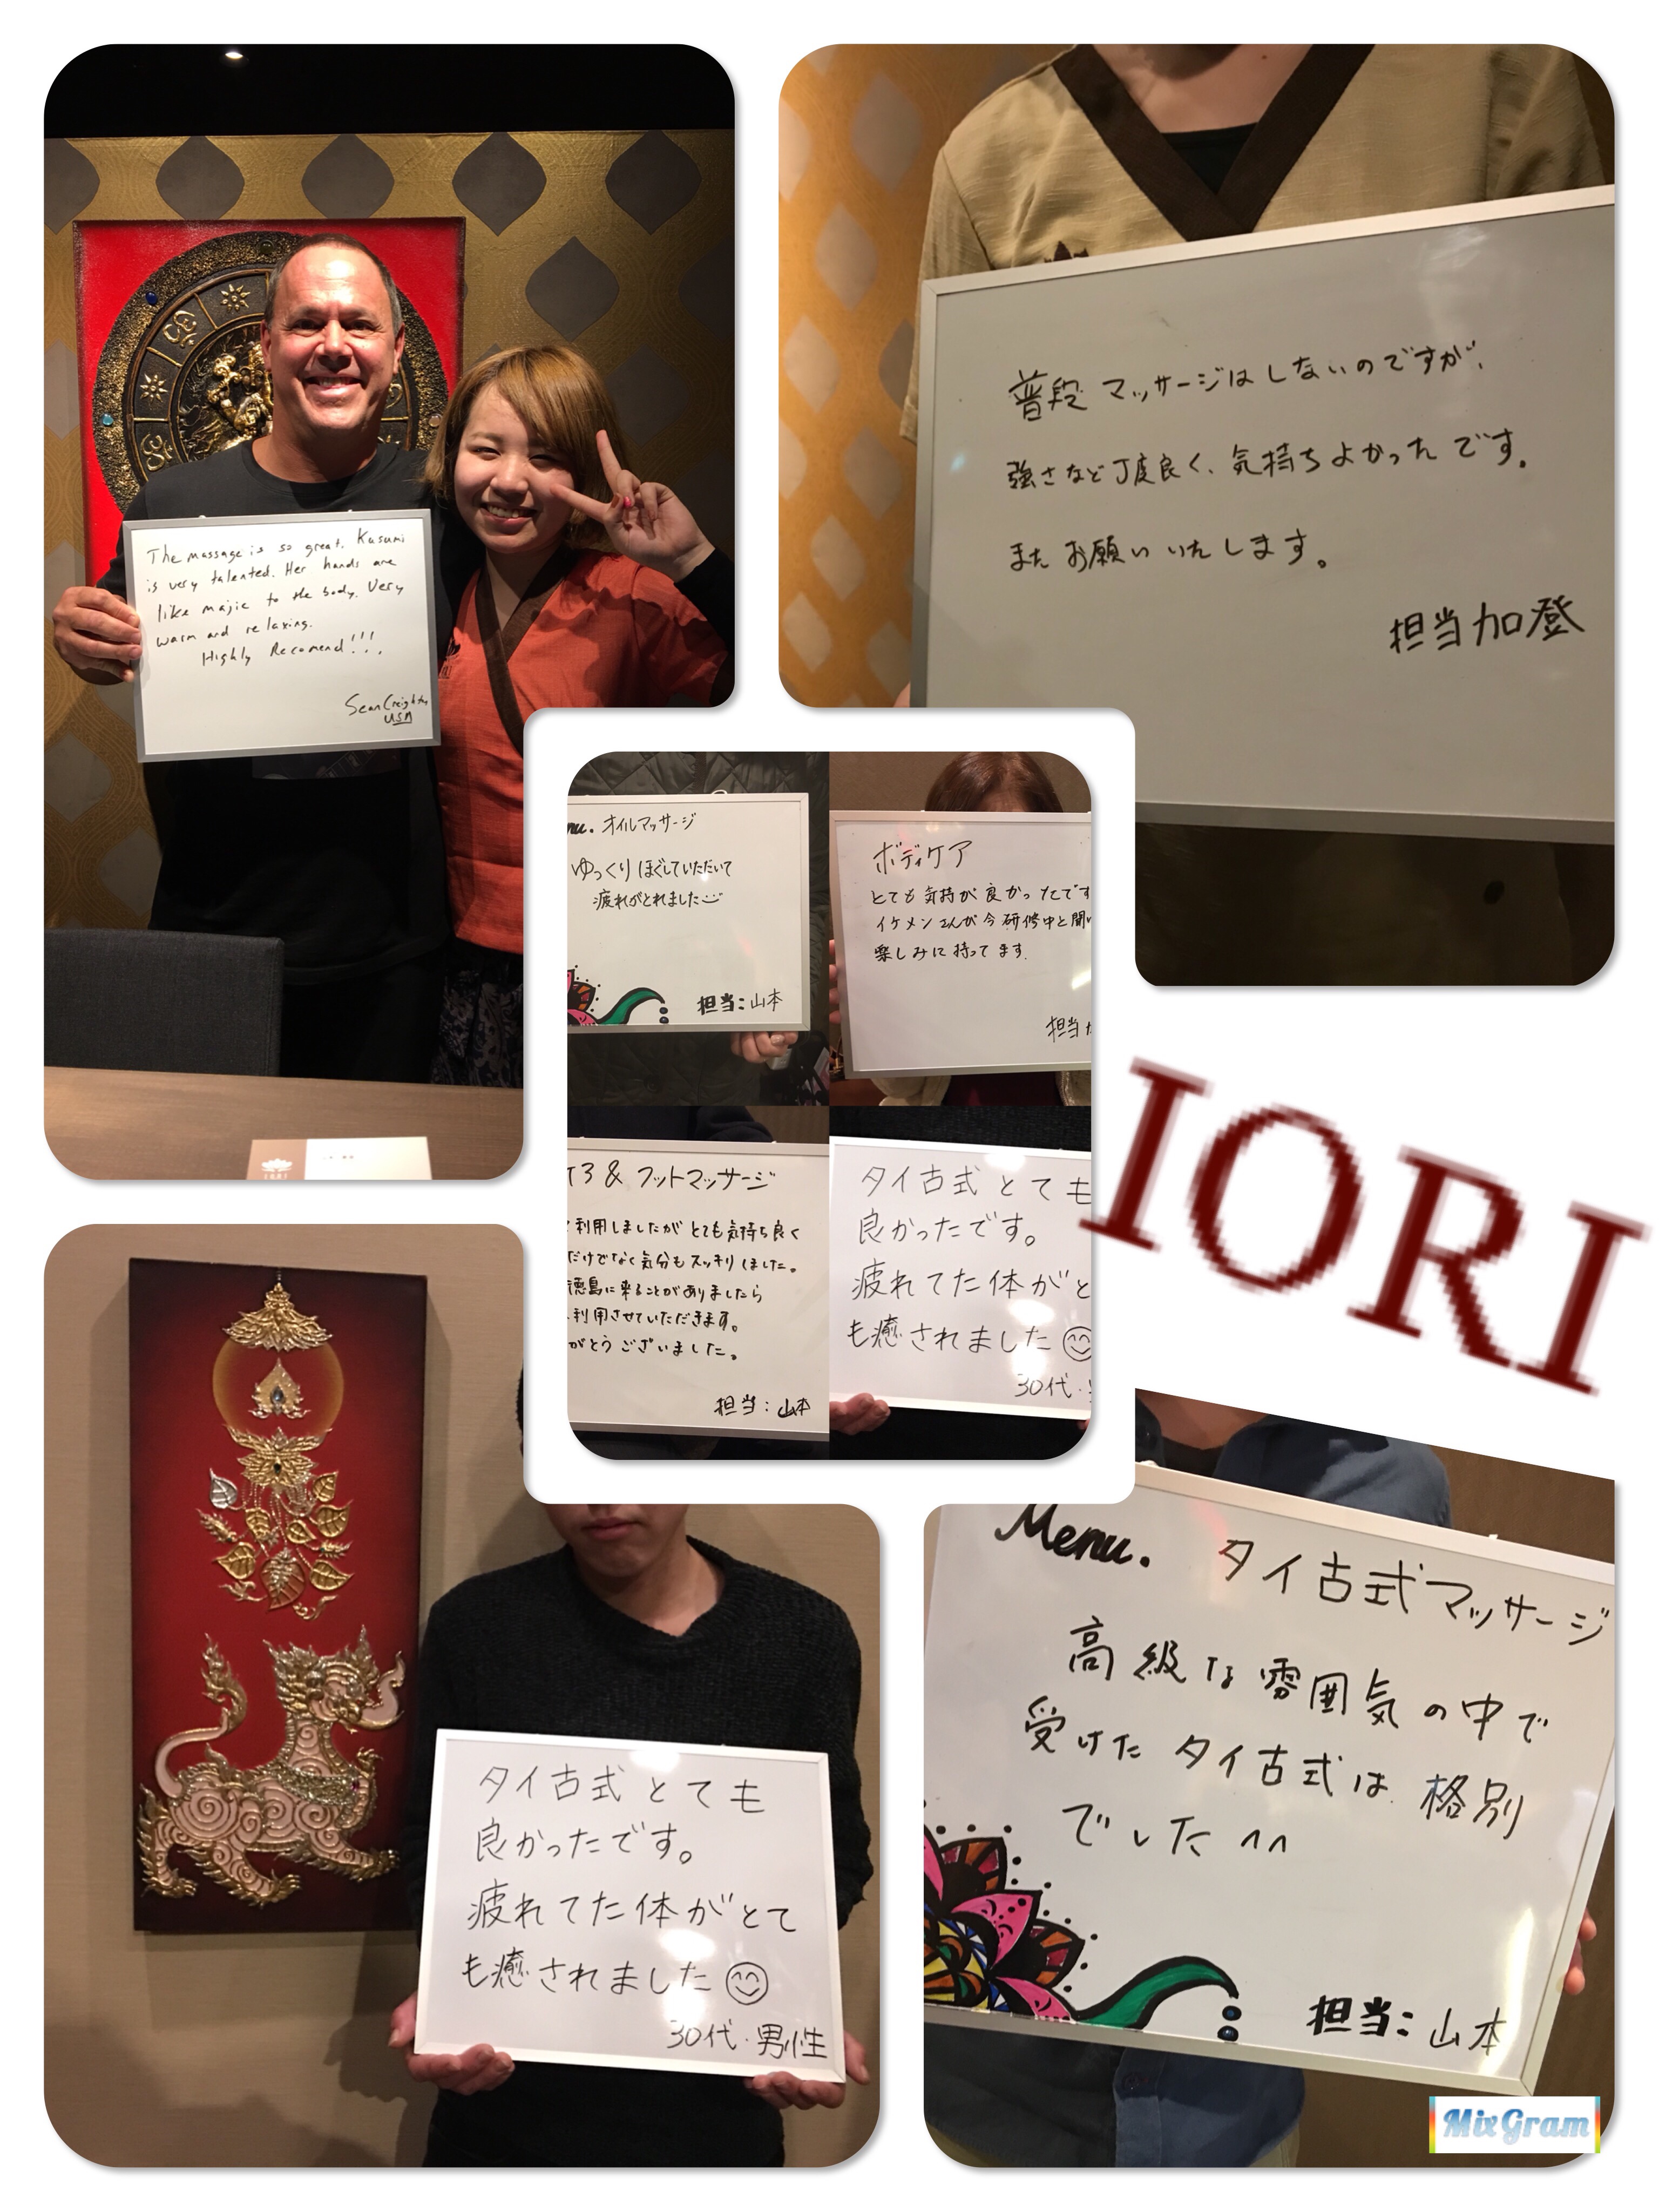 The massage is so great. Kasumi
is very talented. Her hands are
like majic to the body. Very
warm and relaxing.
Highly Recomend!!!
Sean
USA
普段マッサージはしないのですが、
強さなど丁度良く、気持ちよかったです。
またお願いいたします。
担当 加登
nu. オイルマッサージ
ゆっくりほぐしていただいて
疲れがとれました
担当:山本
ボディケア
とても気持が良かったです
イケメンさんが今研修中と聞い
楽しみに持ってます.
担当
3 & フットマッサージ
利用しましたがとても気持ち良く
だけでなく気分もスッキリしました。
徳島に来ることがありましたら
利用させていただきます。
がとうございました。
担当:山本
タイ古式とても
良かったです。
疲れてた体がと
も癒されました
30代・
IORI
タイ古式とても
良かったです。
疲れてた体がとて
も癒されました
30代・男性
Menu. タイ古式マッサージ
高級な雰囲気の中で
受けたタイ古式は格別
でした^^
担当:山本
MixGram